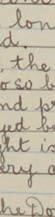 lon
d.
the
so b
nd p
ed b
ht is
ery a
he D